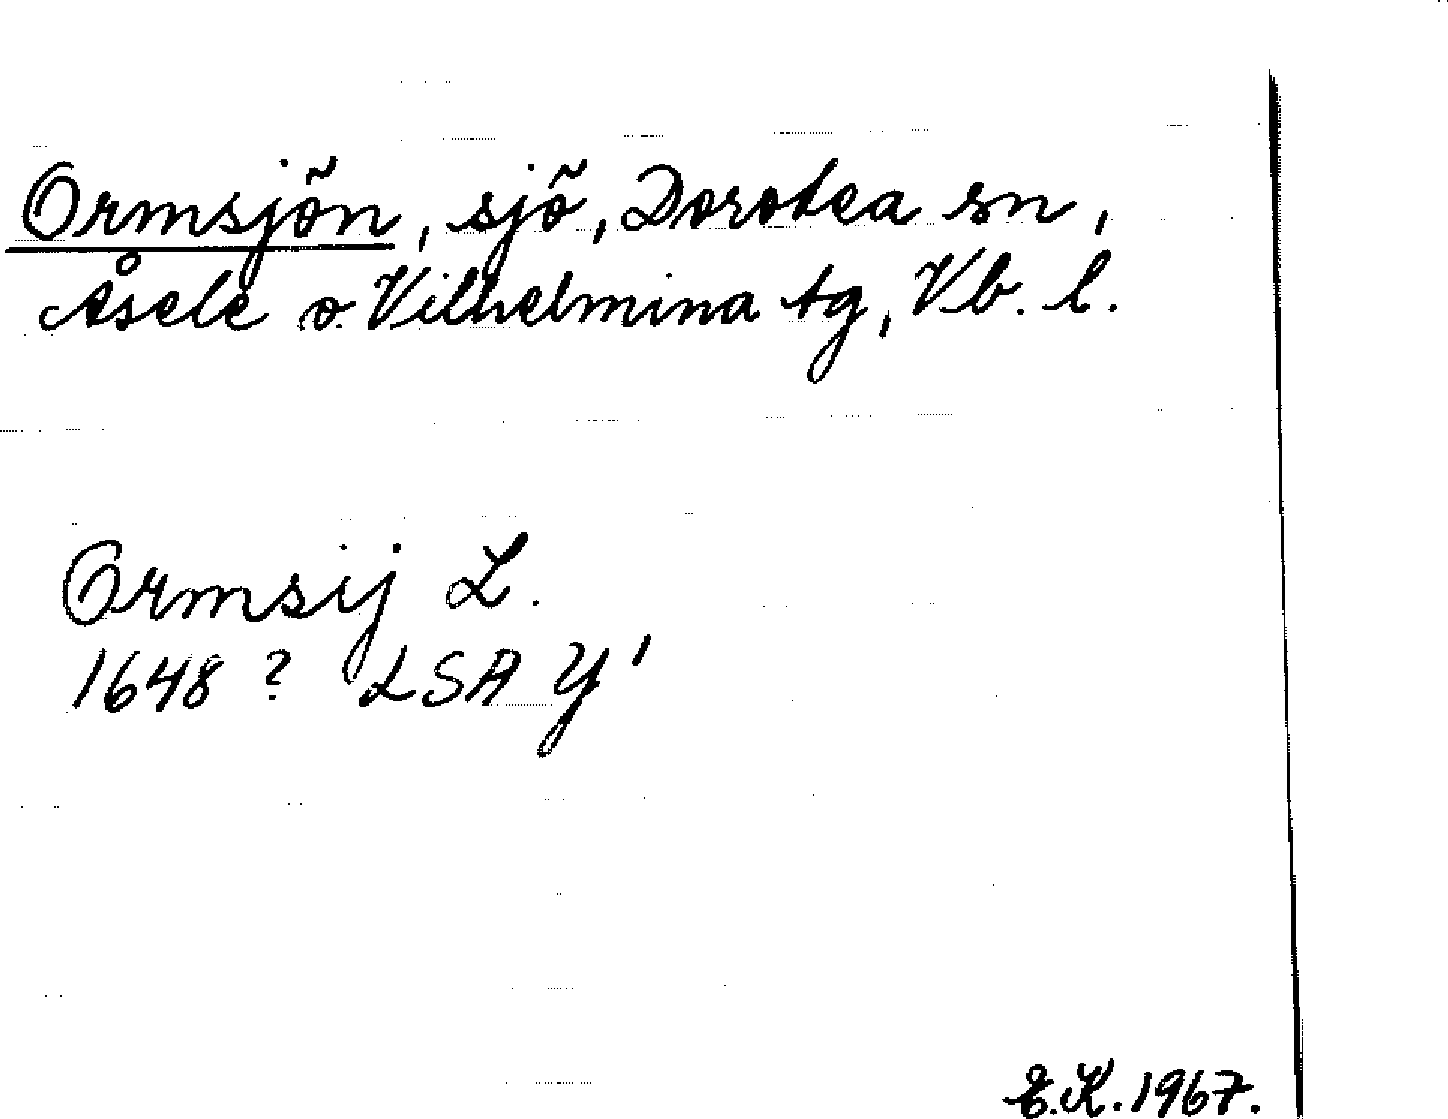 Ormsjön, sjö, Dorotea sn,
Åsele o. Vilhelmina tg, Vb. l.
Ormsij L.
1648 ? LSA Y'
E.K. 1967.